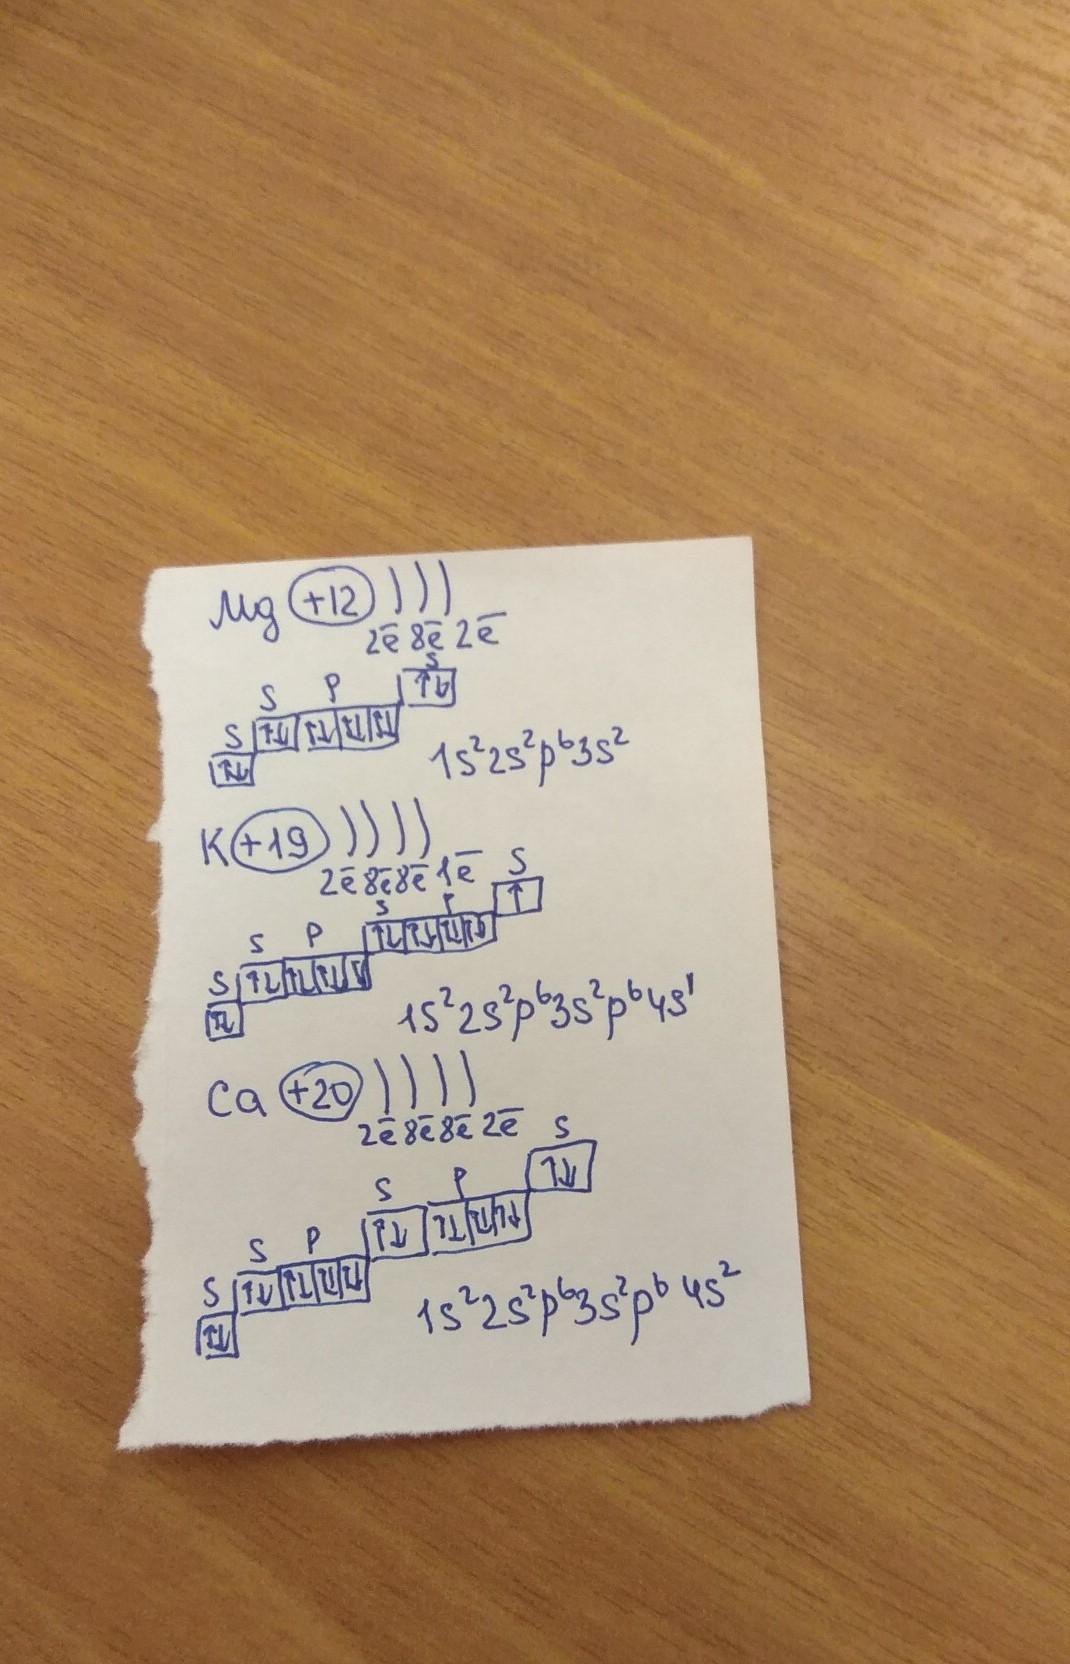 Mg +12 ) ) )
2ē 8ē 2ē
S
S P
S
↑↓ ↑↓ ↑↓ ↑↓ ↑↓ ↑↓
1s²2s²p⁶3s²
K +19 ) ) ) )
2ē 8ē 8ē 1ē S
S P ↑
S P ↑↓ ↑↓ ↑↓ ↑↓
S ↑↓ ↑↓ ↑↓ ↑↓
↑↓
1s²2s²p⁶3s²p⁶4s¹
Ca +20 ) ) ) )
2ē 8ē 8ē 2ē S
S P ↑↓
S P ↑↓ ↑↓ ↑↓ ↑↓
S ↑↓ ↑↓ ↑↓ ↑↓
↑↓
1s²2s²p⁶3s²p⁶4s²